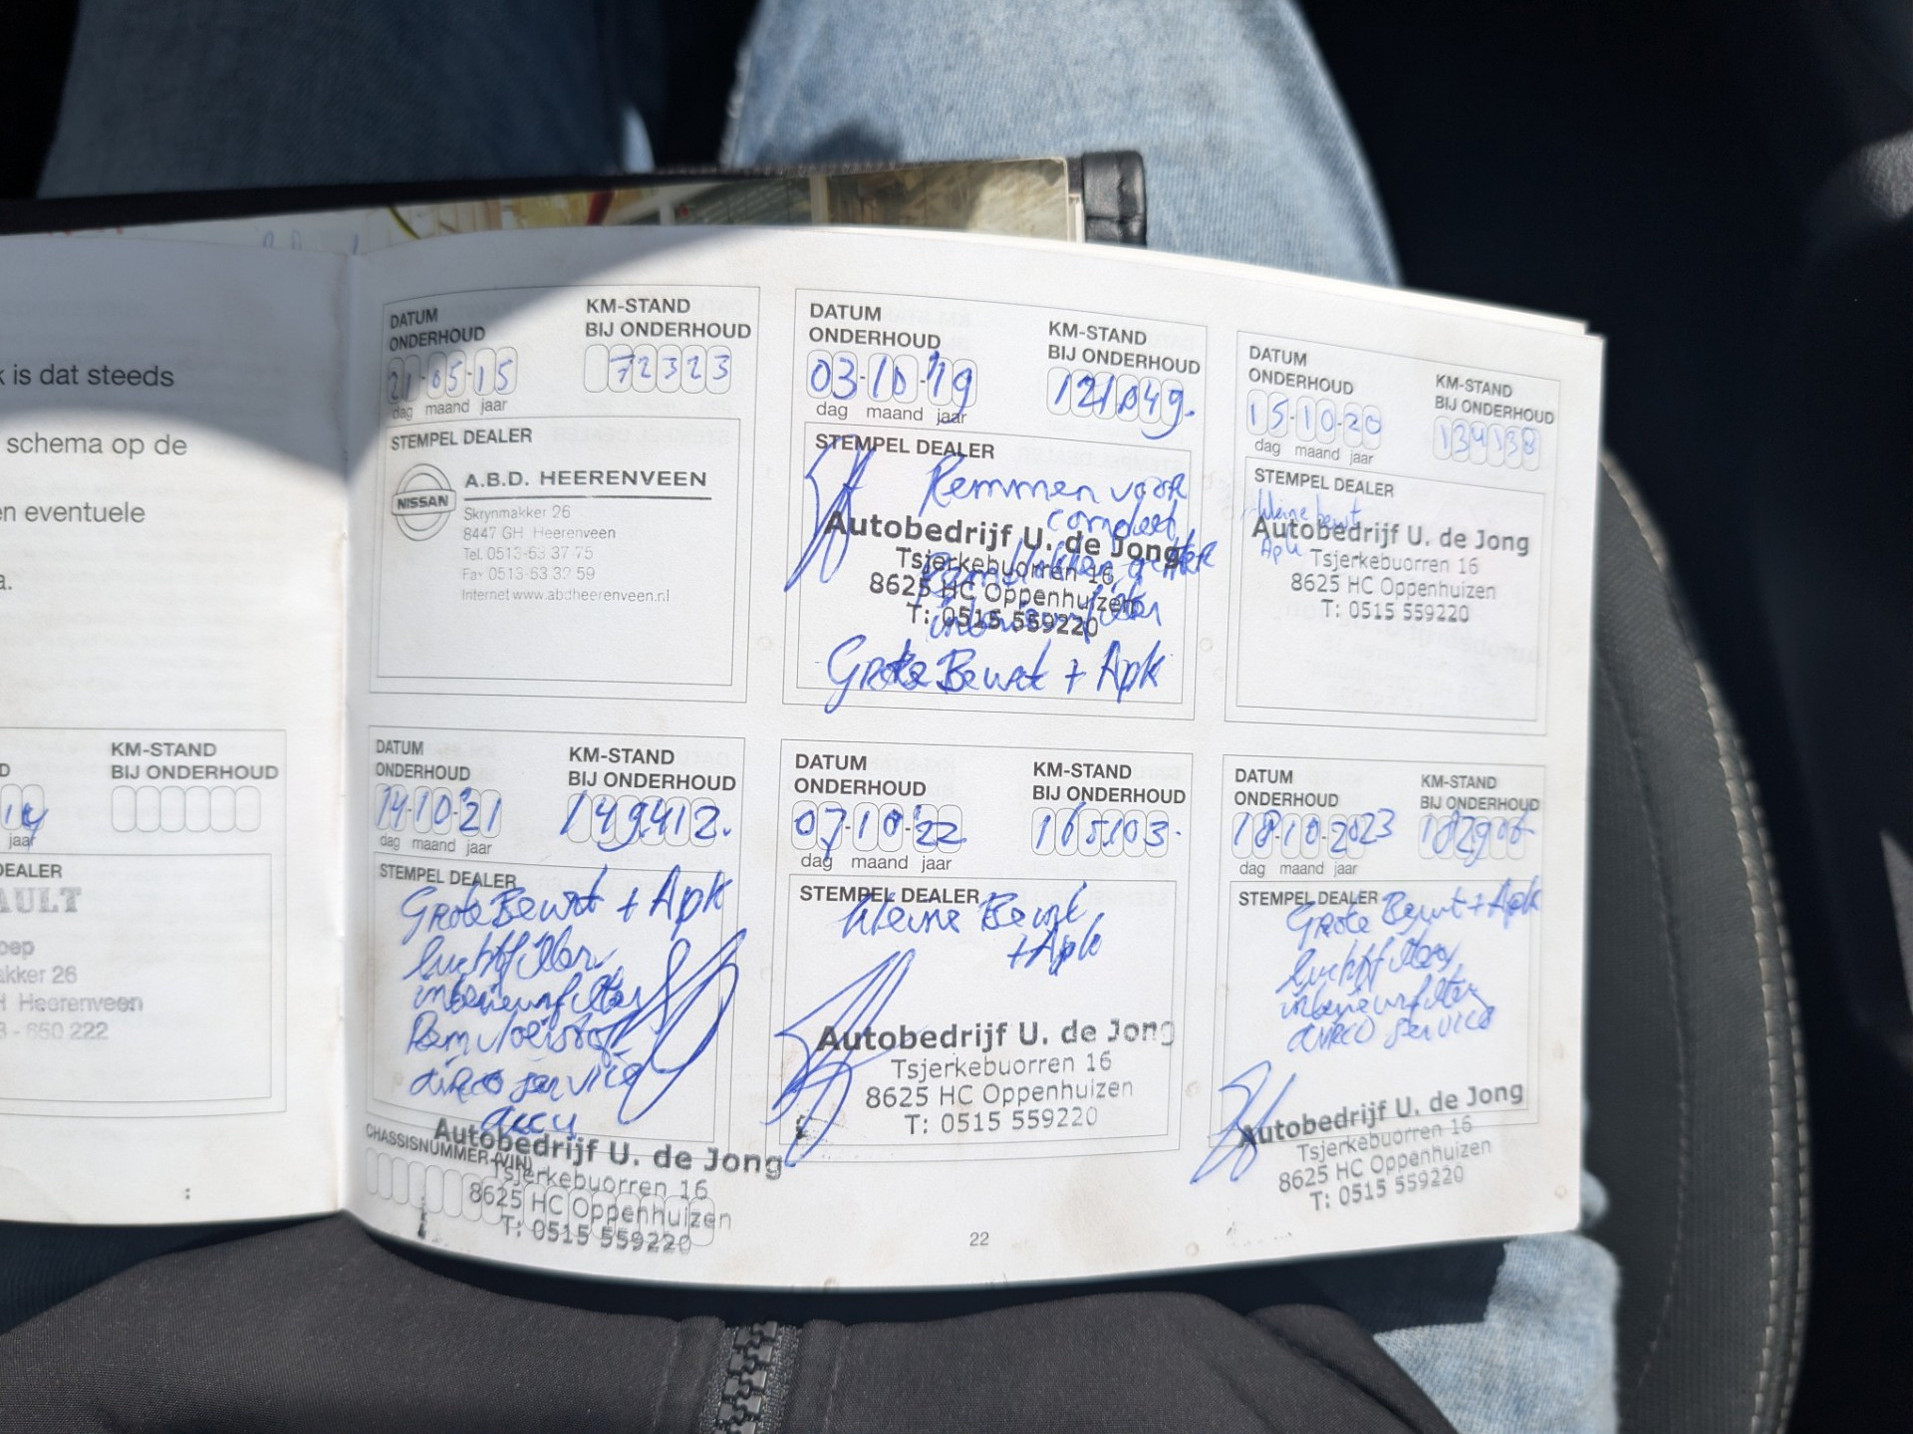 k is dat steeds
schema op de
en eventuele
a.
KM-STAND
BIJ ONDERHOUD
14
jaar
DEALER
AULT
oep
akker 26
H Heerenveen
8 - 650 222
DATUM
ONDERHOUD
KM-STAND
BIJ ONDERHOUD
21-05-15
72323
dag maand jaar
STEMPEL DEALER
NISSAN
A.B.D. HEERENVEEN
Skrynmakker 26
8447 GH Heerenveen
Tel. 0513-63 37 75
Fax 0513-63 32 59
Internet www.abdheerenveen.nl
DATUM
ONDERHOUD
KM-STAND
BIJ ONDERHOUD
03-10-19
121.049.
dag maand jaar
STEMPEL DEALER
Remmen voor
compleet
Autobedrijf U. de Jong
Tsjerkebuorren 16
8625 HC Oppenhuizen
T: 0515 559220
Grote Beurt + Apk
DATUM
ONDERHOUD
KM-STAND
BIJ ONDERHOUD
15-10-20
134138
dag maand jaar
STEMPEL DEALER
kleine beurt
Autobedrijf U. de Jong
Apk
Tsjerkebuorren 16
8625 HC Oppenhuizen
T: 0515 559220
DATUM
ONDERHOUD
KM-STAND
BIJ ONDERHOUD
14-10-21
149.412.
dag maand jaar
STEMPEL DEALER
Grote Beurt + Apk
luchtfilter
interieurfilter
Remvloeistof
airco service
accu
CHASSISNUMMER (VIN)
Autobedrijf U. de Jong
Tsjerkebuorren 16
8625 HC Oppenhuizen
T: 0515 559220
DATUM
ONDERHOUD
KM-STAND
BIJ ONDERHOUD
07-10-22
165.103.
dag maand jaar
STEMPEL DEALER
kleine Beurt
+ Apk
Autobedrijf U. de Jong
Tsjerkebuorren 16
8625 HC Oppenhuizen
T: 0515 559220
DATUM
ONDERHOUD
KM-STAND
BIJ ONDERHOUD
18-10-2023
dag maand jaar
STEMPEL DEALER
Grote Beurt + Apk
luchtfilter
interieurfilter
airco service
Autobedrijf U. de Jong
Tsjerkebuorren 16
8625 HC Oppenhuizen
T: 0515 559220
22